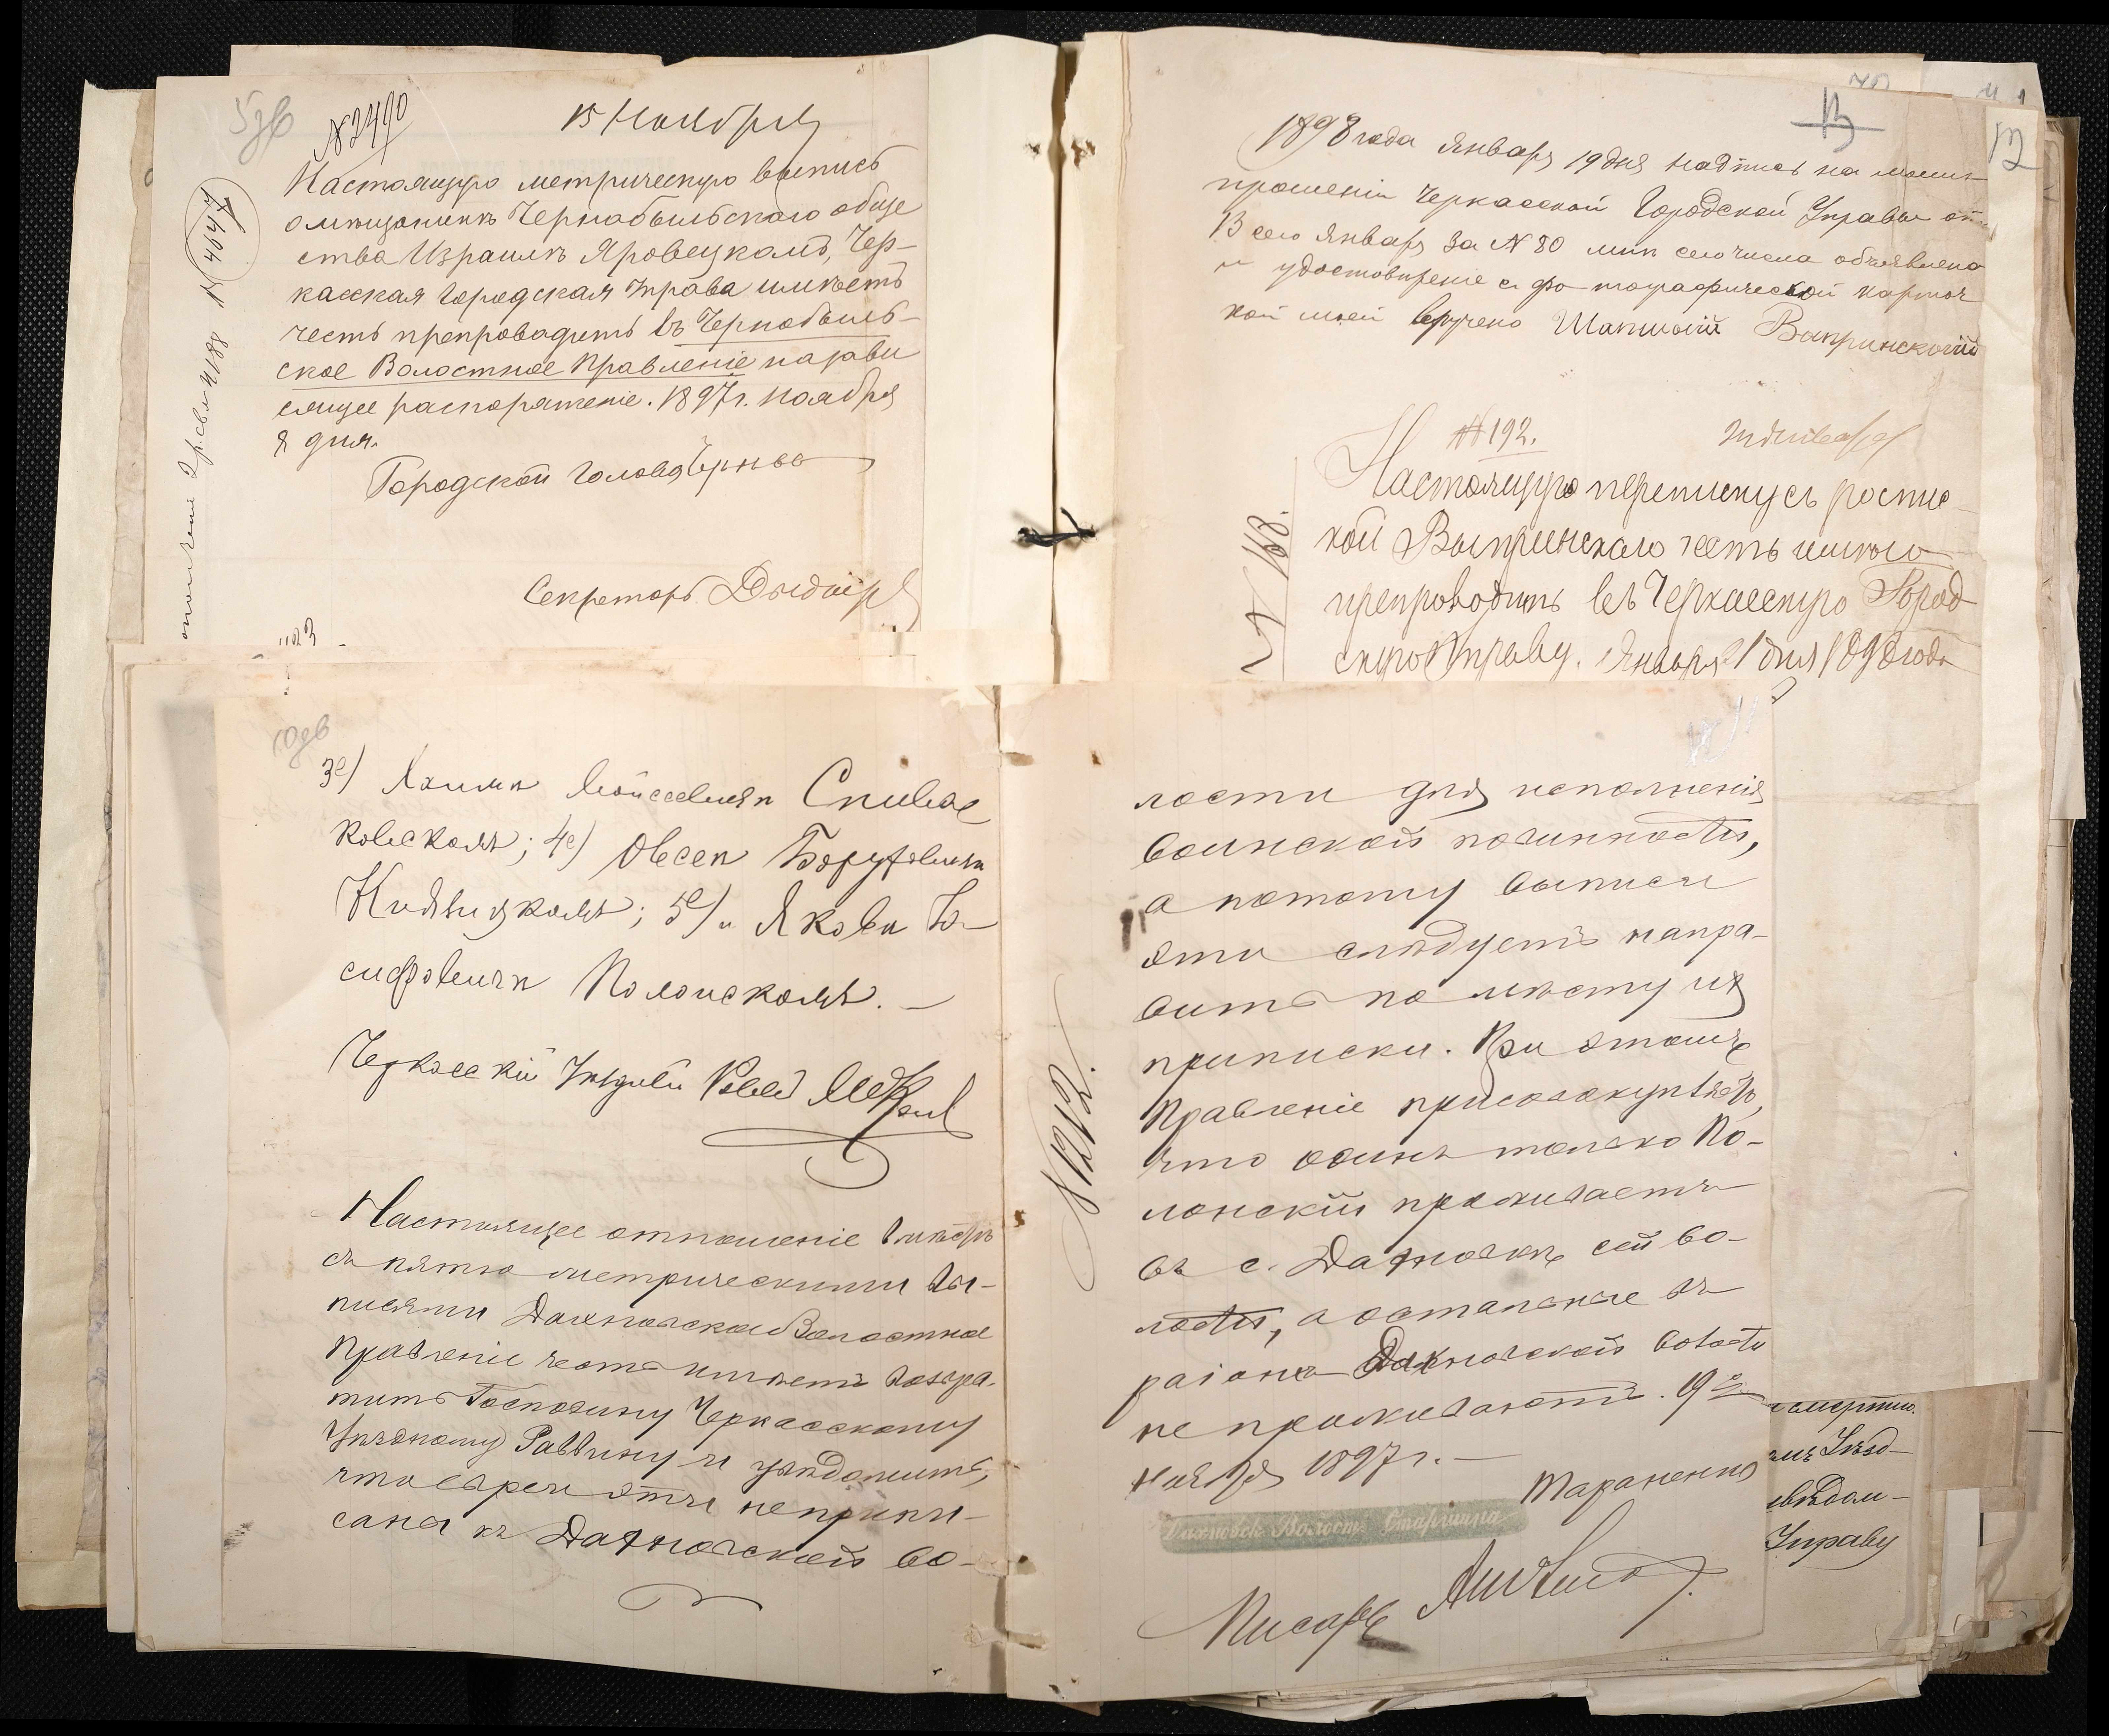 5 зв
№ 2490
15 Ноября
Настоящую метрическую выпись
о мѣщанинѣ Чернобыльскаго обще
ства Израилѣ Яровецкомъ, Чер-
касская Городская Управа имѣетъ
честь препроводить въ Чернобыль-
ское Волостное Правленіе на зави
сящее распоряженіе. 1897 г. Ноября
8 дня.
Городской Голова
Секретарь
№ 4647
1898 года Января 19 дня надпись на моемъ
прошеніи Черкасской Городской Управы отъ
13 сего Января за № 80 мнѣ сего числа объявлена
и удостовѣреніе съ фотографической карточ
кой моей вручено
13
12
№ 192.
Января
Настоящую переписку съ роспис
кой Выпринскаго честь имѣю
препроводить въ Черкасскую Город
скую Управу. Января дня 1898 года
№ 168.
10 зв
3е) Хаимѣ Мойсеевичѣ Спивак
ковскомъ; 4е) Овсеѣ Боруховичѣ
Кіяницкомъ; 5е) и Яковѣ Іо-
сифовичѣ Полонскомъ. —
Черкасскій Уѣздный Раввинъ
Настоящее отношеніе вмѣстѣ
съ пятью метрическими вы-
писями Дахновское Волостное
Правленіе честь имѣетъ возвра-
тить Господину Черкасскому
Уѣздному Раввину и увѣдомить,
что евреи эти не припи-
саны къ Дахновской во-
11
лости для исполненія
воинской повинности,
а потому выписи
эти слѣдуетъ напра-
вить по мѣсту ихъ
приписки. При этомъ
Правленіе присовокупляетъ,
что одинъ только По-
лонскій проживаетъ
въ с. Дахновкѣ сей во-
лости, а остальные въ
районѣ Дахновской волости
не проживаютъ. 19
Ноября 1897 г. —
Дахновск. Волостн. Старшина
Тараненко
Писарь
№ 1212.
смертію.
Уѣзд-
Управу